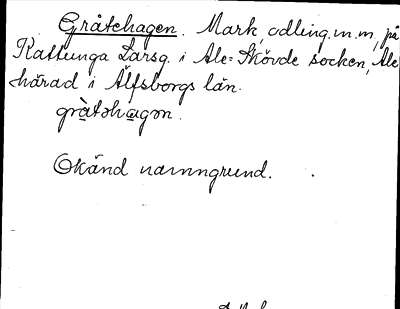 Gråtehagen. Mark, odling m. m, på
Kattunga Larsg. i Ale-Skövde socken, Ale
härad i Älfsborgs län.
gràtəhagən.
Okänd namngrund.